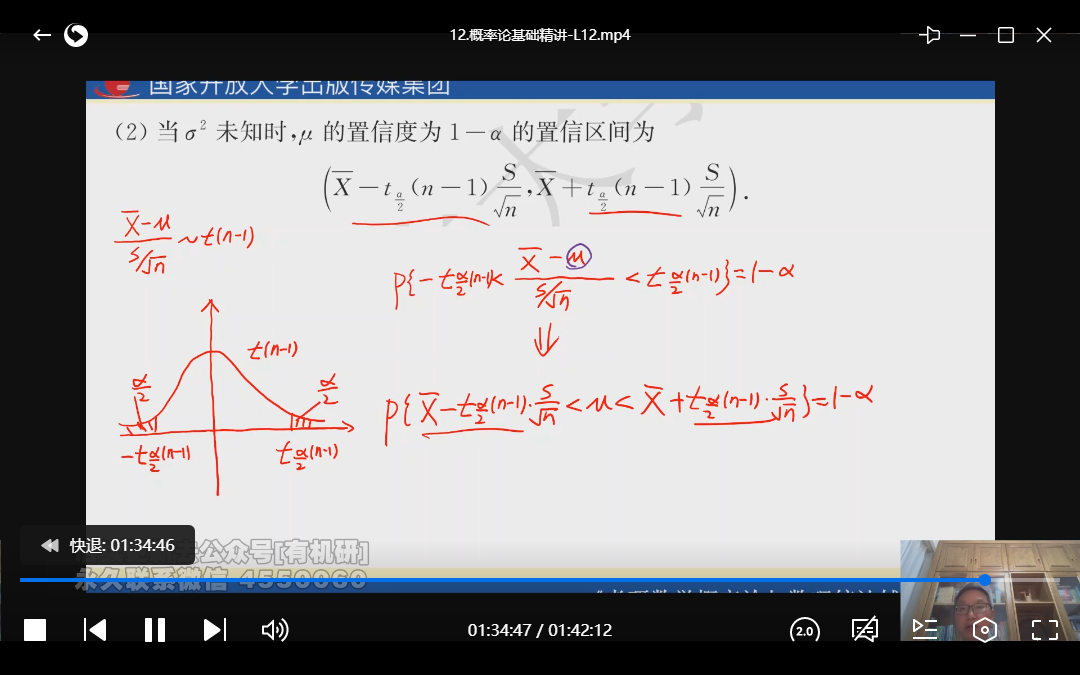 12.概率论基础精讲-L12.mp4
国家开放大学出版传媒集团
(2) 当 σ² 未知时,μ 的置信度为 1－α 的置信区间为
(X̄－t_{α/2}(n－1) S/√n, X̄＋t_{α/2}(n－1) S/√n).
(X̄-μ)/(S/√n) ~t(n-1)
P{-t_{α/2}(n-1)< (X̄-μ)/(S/√n) <t_{α/2}(n-1)}=1-α
⇓
t(n-1)
α/2
α/2
P{X̄-t_{α/2}(n-1)·S/√n<μ<X̄+t_{α/2}(n-1)·S/√n}=1-α
-t_{α/2}(n-1)
t_{α/2}(n-1)
快退: 01:34:46
公众号[有机研]
永久联系微信 4550060
01:34:47 / 01:42:12
2.0